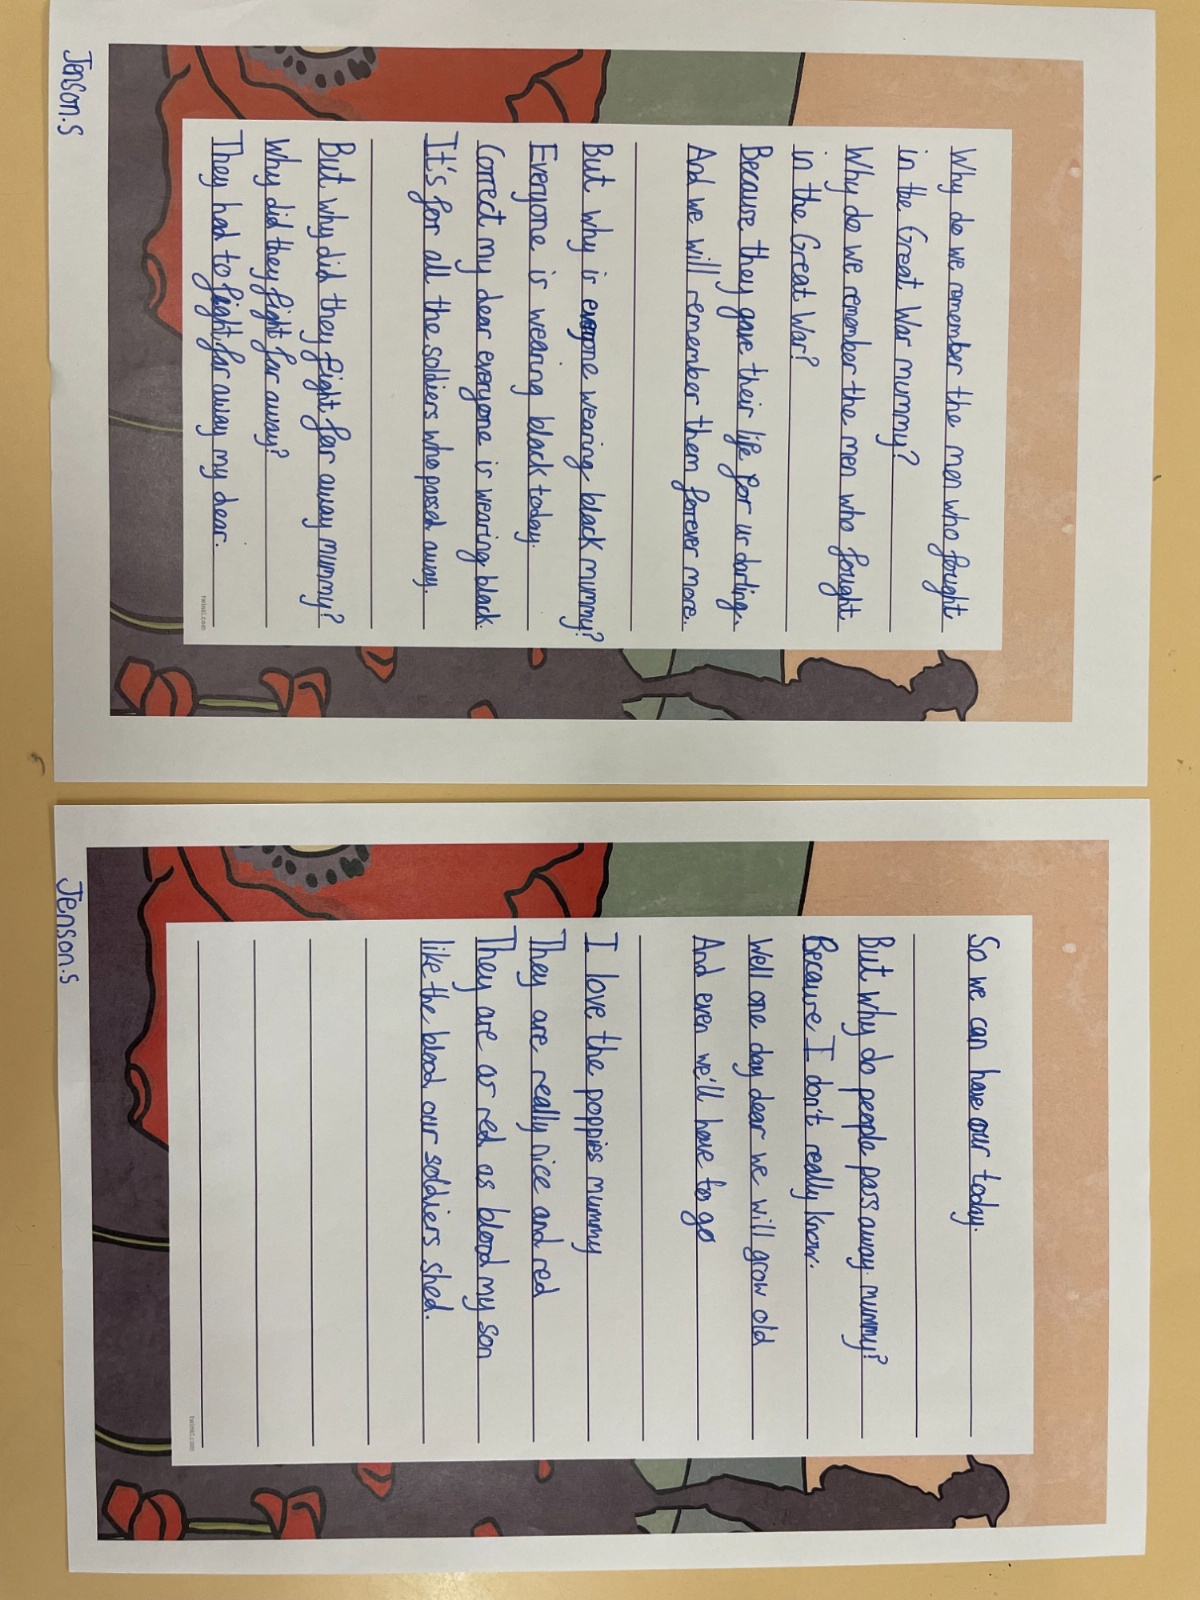 Why do we remember the men who fought
in the Great War mummy?
Why do we remember the men who fought
in the Great War?
Because they gave their life for us darling.
And we will remember them forever more.
But why is everyone wearing black mummy?
Everyone is wearing black today.
Correct my dear everyone is wearing black.
It's for all the soldiers who passed away.
But why did they fight far away mummy?
Why did they fight far away?
They had to fight far away my dear.
twinkl.com
Jenson.S
So we can have our today.
But why do people pass away mummy?
Because I don't really know.
Well one day dear we will grow old
And even we'll have to go
I love the poppies mummy
They are really nice and red
They are as red as blood my son
like the blood our soldiers shed.
twinkl.com
Jenson.S